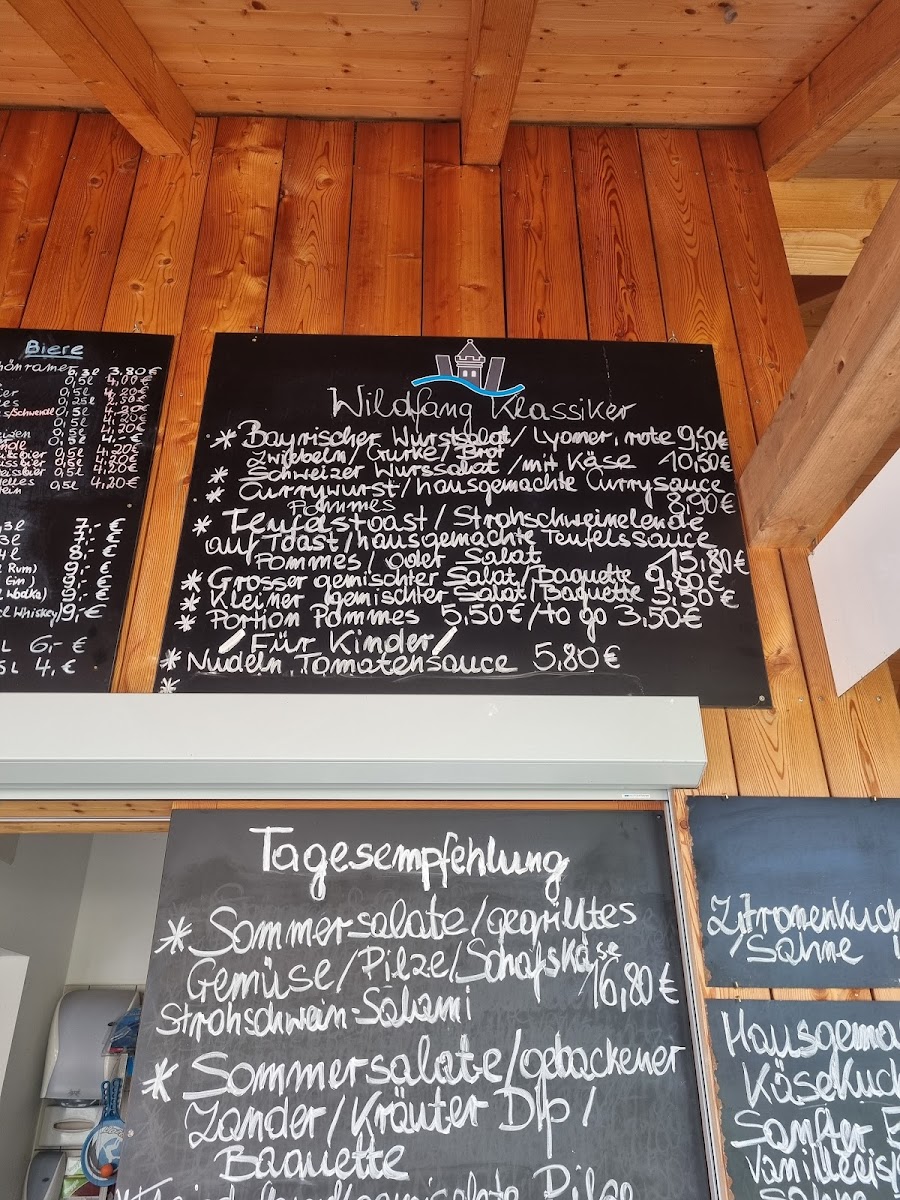 Biere
0,3l 3,80€
0,5l 4,00€
0,5l 4,20€
0,25l
0,5l 4,20€
0,5l 4,20€
0,5l 4,-€
0,5l 4,20€
0,5l 4,20€
0,5l 4,20€
0,5l 4,20€
3l 7,-€
7,-€
4l 8,-€
Rum) 9,-€
Gin) 9,-€
Wodka) 9,-€
Whiskey) 9,-€
L 6,-€
5L 4,€
Wildfang Klassiker
* Bayrischer Wurstsalat/Lyoner, rote 9,50€
Zwiebeln/Gurke/Brot
* Schweizer Wurssalat/mit Käse 10,50€
* Currywurst/hausgemachte Currysauce
Pommes 8,90€
* Teufelstoast/Strohschweinelende
auf Toast/hausgemachte Teufelssauce
Pommes/oder Salat 15,80€
* Grosser gemischter Salat/Baguette 9,80€
* Kleiner gemischter Salat/Baguette 5,50€
* Portion Pommes 5,50€/to go 3,50€
/Für Kinder/
* Nudeln, Tomatensauce 5,80€
*
Tagesempfehlung
* Sommersalate/gegrilltes
Gemüse/Pilze/Schafskäse
Strohschwein-Salami 16,80€
* Sommersalate/gebackener
Zander/Kräuter Dip/
Baguette
Zitronenkuch
/Sahne
Hausgema
Käsekuch
Sanfter
Vanilleeis